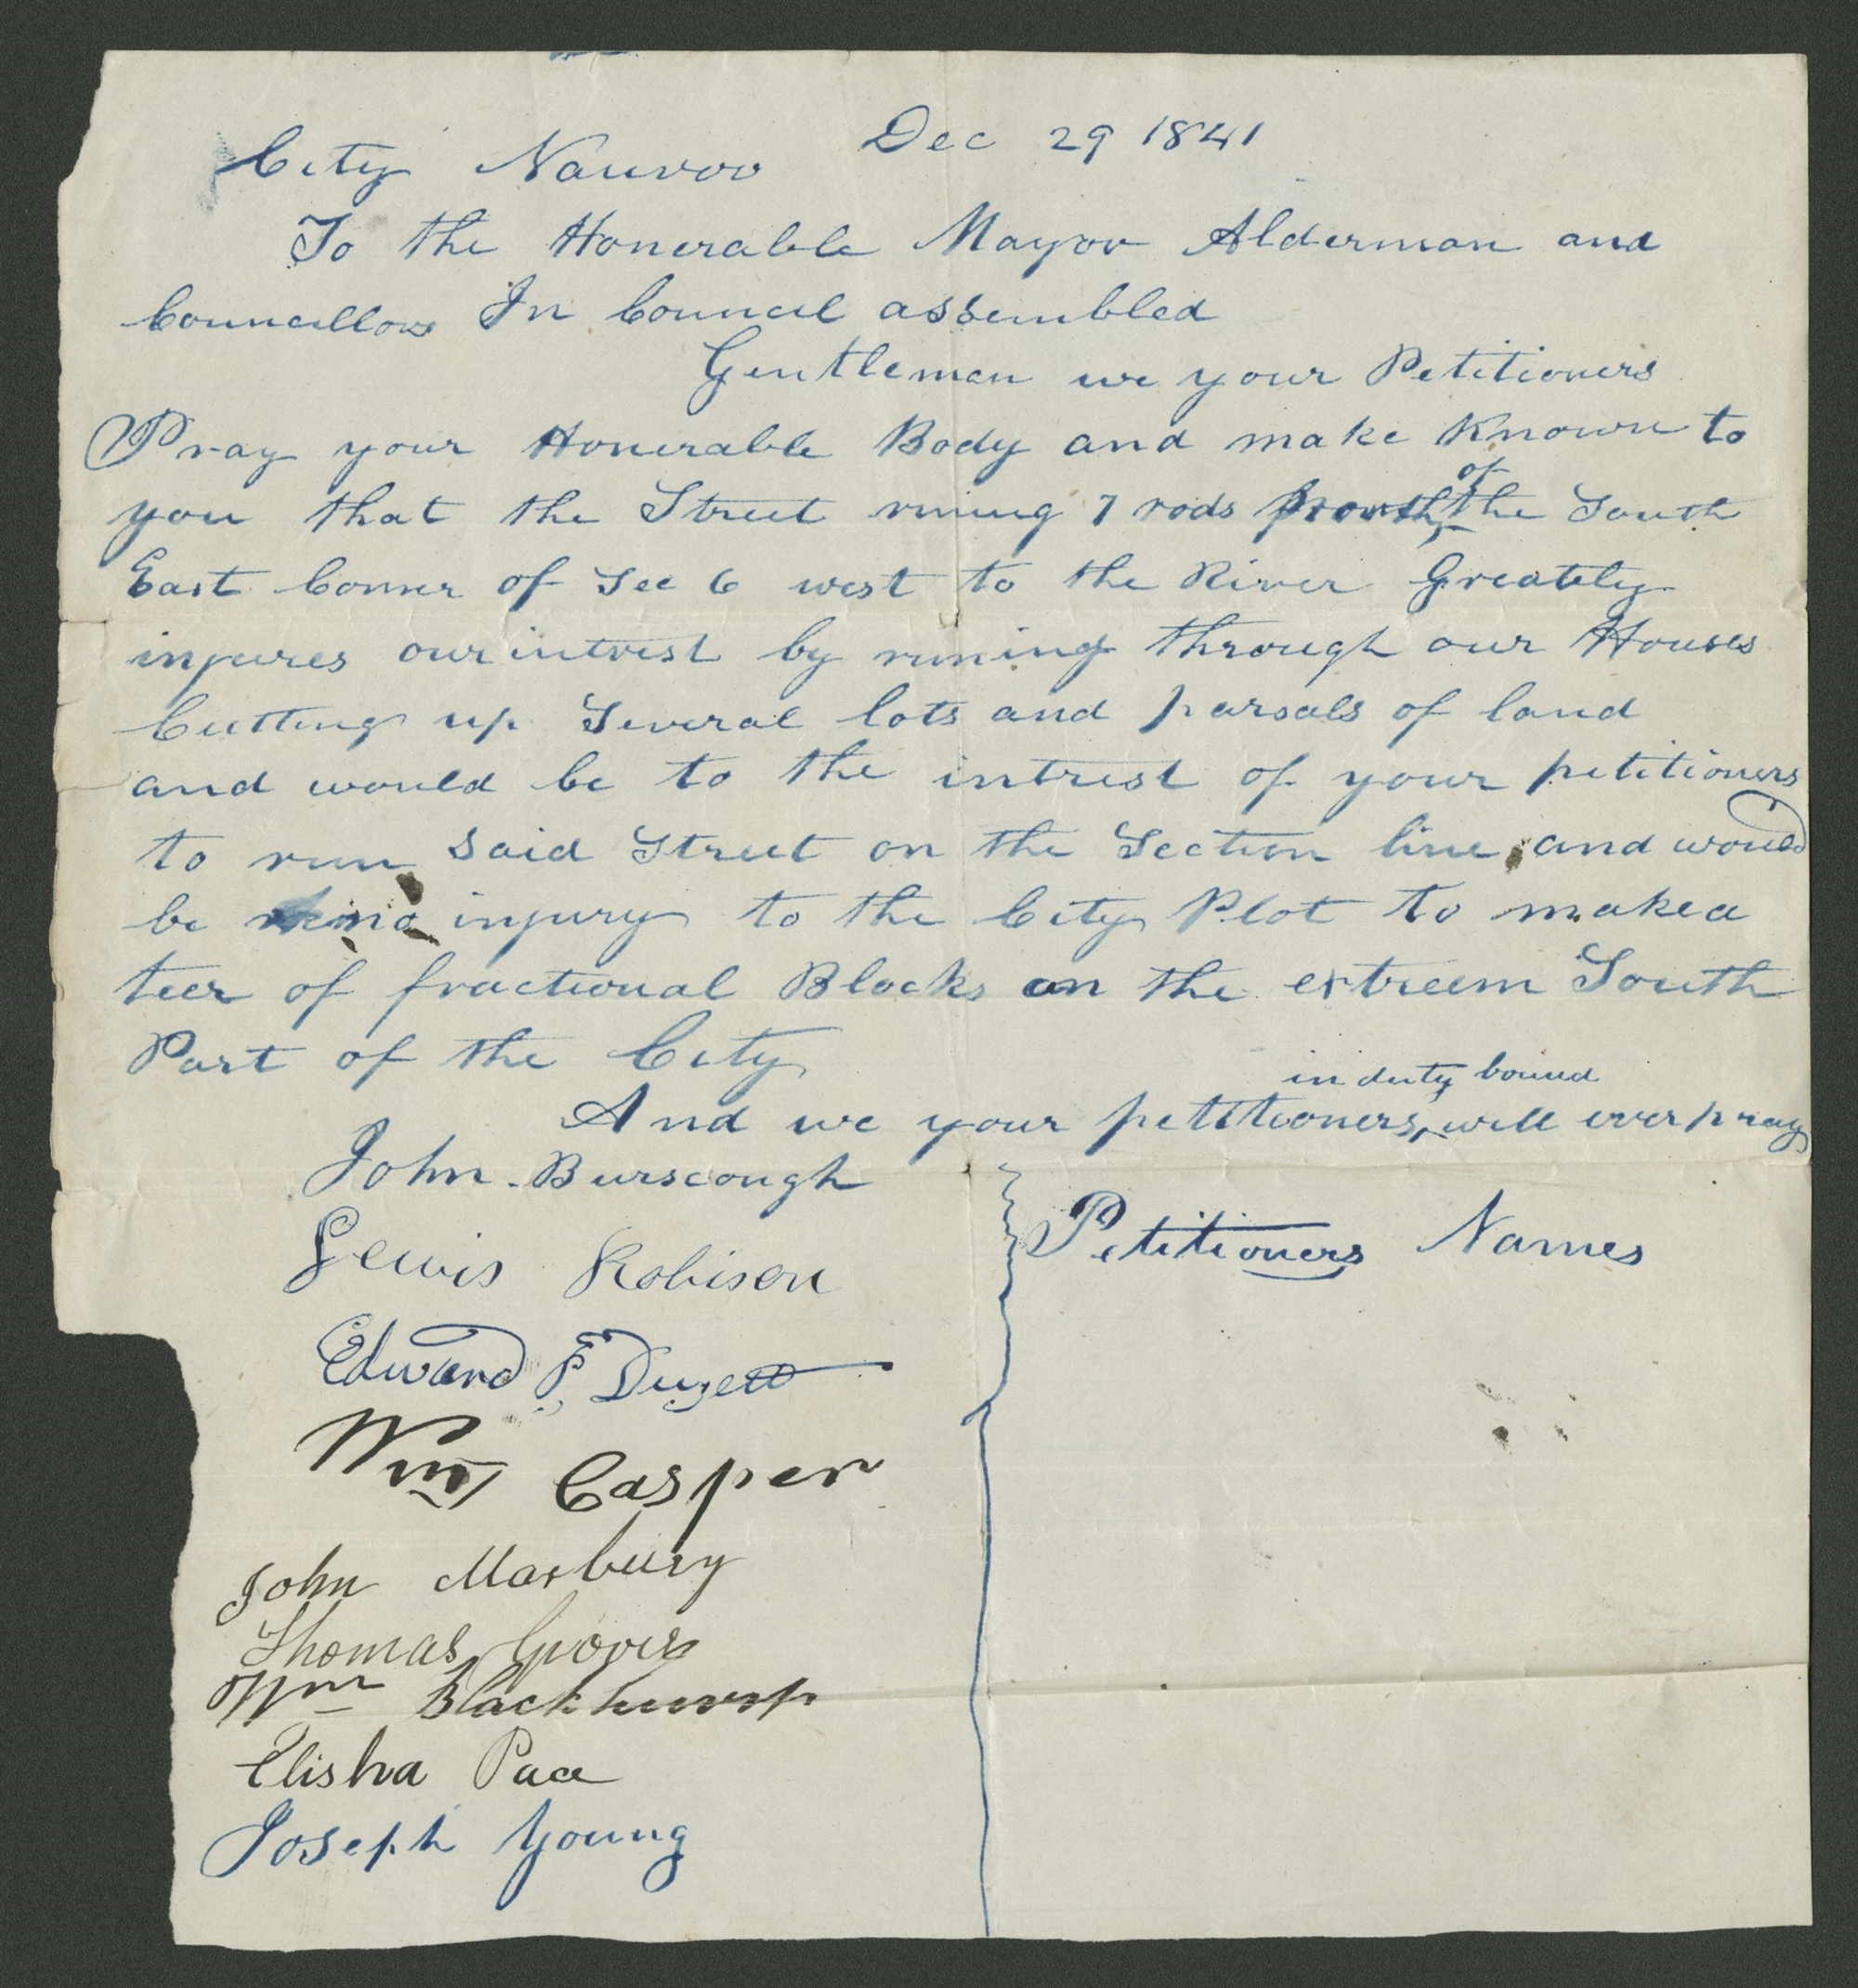 City Nauvoo Dec 29 1841
To the Honerable Mayor Alderman and
Councellors In Council assembled
Gentleman we your Petitioners
Pray your Honerable Body and make Known to
of
you that the Street runing 7 rods north the South
East Corner of Sec 6 west to the River Greately
injures our intrest by runing through our Houses
Cutting up Several lots and parsals of land
and would be to the intrest of your petitioners
to run Said Street on the Section line and would
be no injury to the City Plot to make a
teer of fractional Blocks on the extreem South
Part of the City
in duty bound
And we your petitioners, will ever pray
John Burscough
Petitioners Names
Lewis Robison
Edward P Duzett
Wm Casper
John Marbury
Thomas Grover
Wm Blackhurst
Elisha
Joseph Young